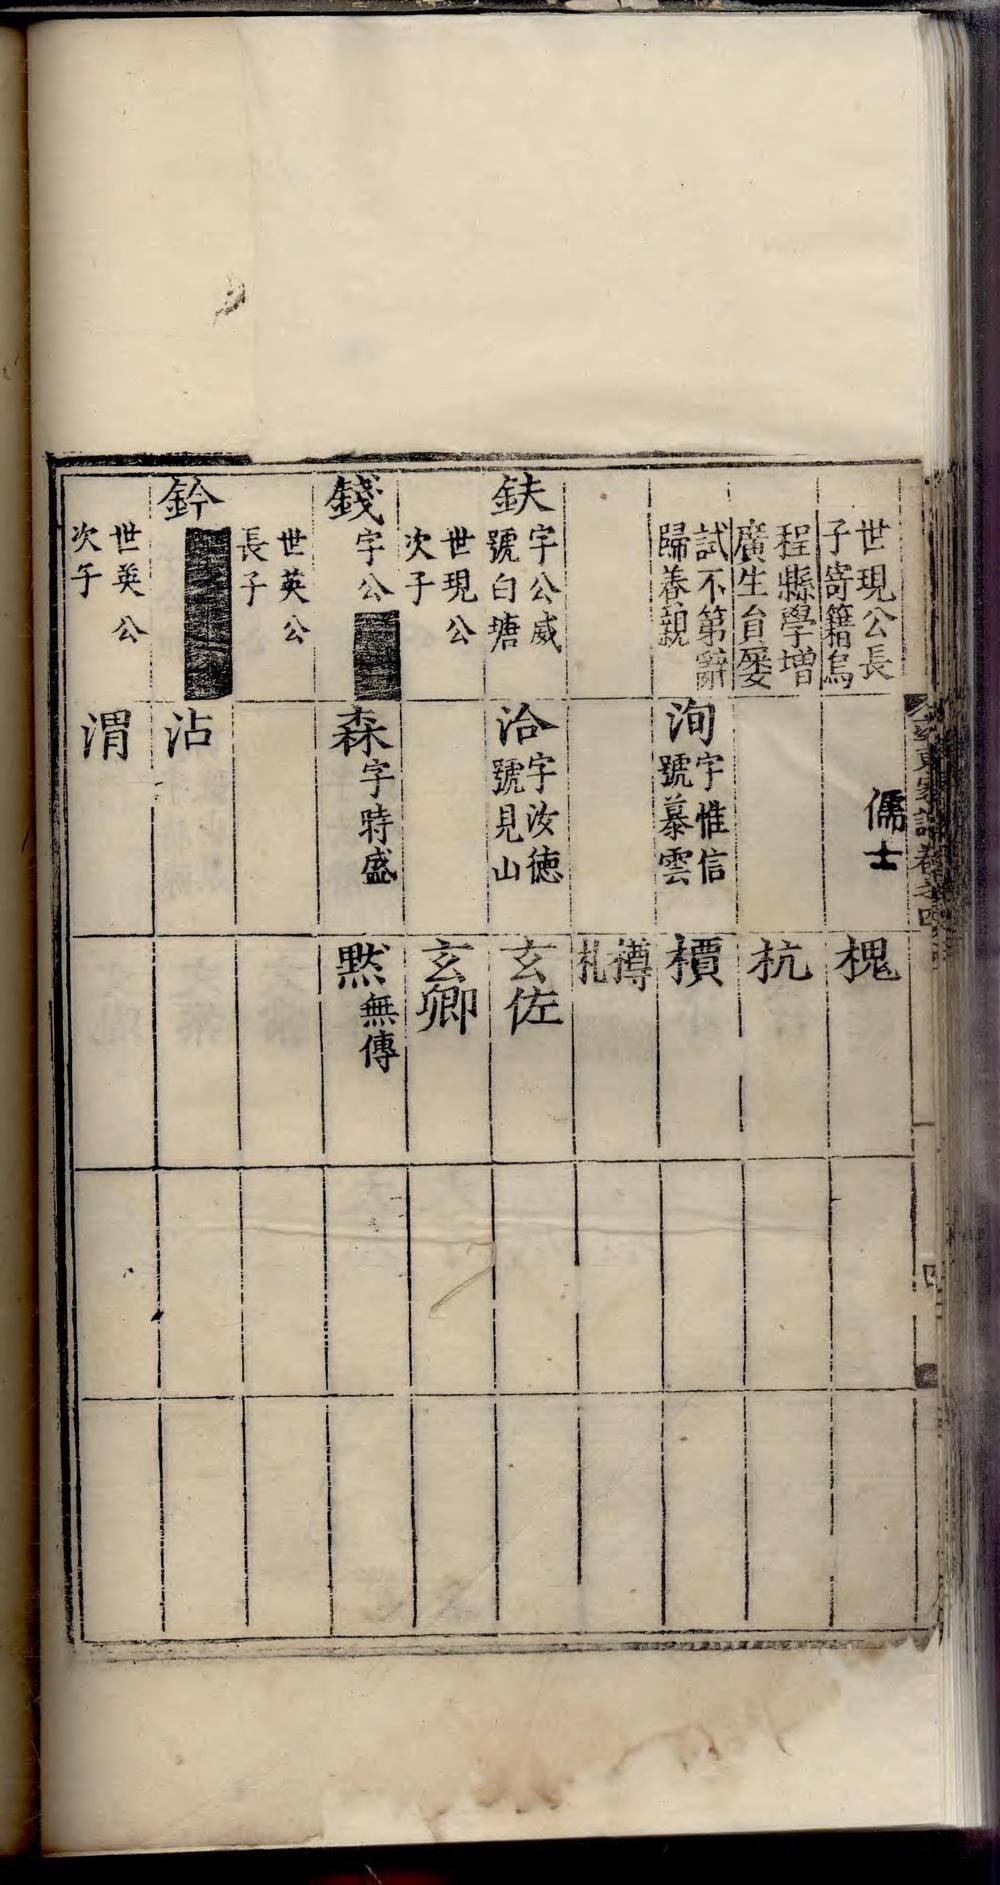 世現公長
子寄籍烏
程縣學增
廣生員屡
試不第辭
歸養親
鈇
字公威
號白塘
世現公
次子
錢
字公
世英公
長子
鈐
世英公
次子
儒士
洵
字惟信
號慕雲
洽
字汝德
號見山
森
字時盛
沾
渭
槐
杭
檟
樽
札
玄佐
玄卿
默
無傳
家譜卷之四
四